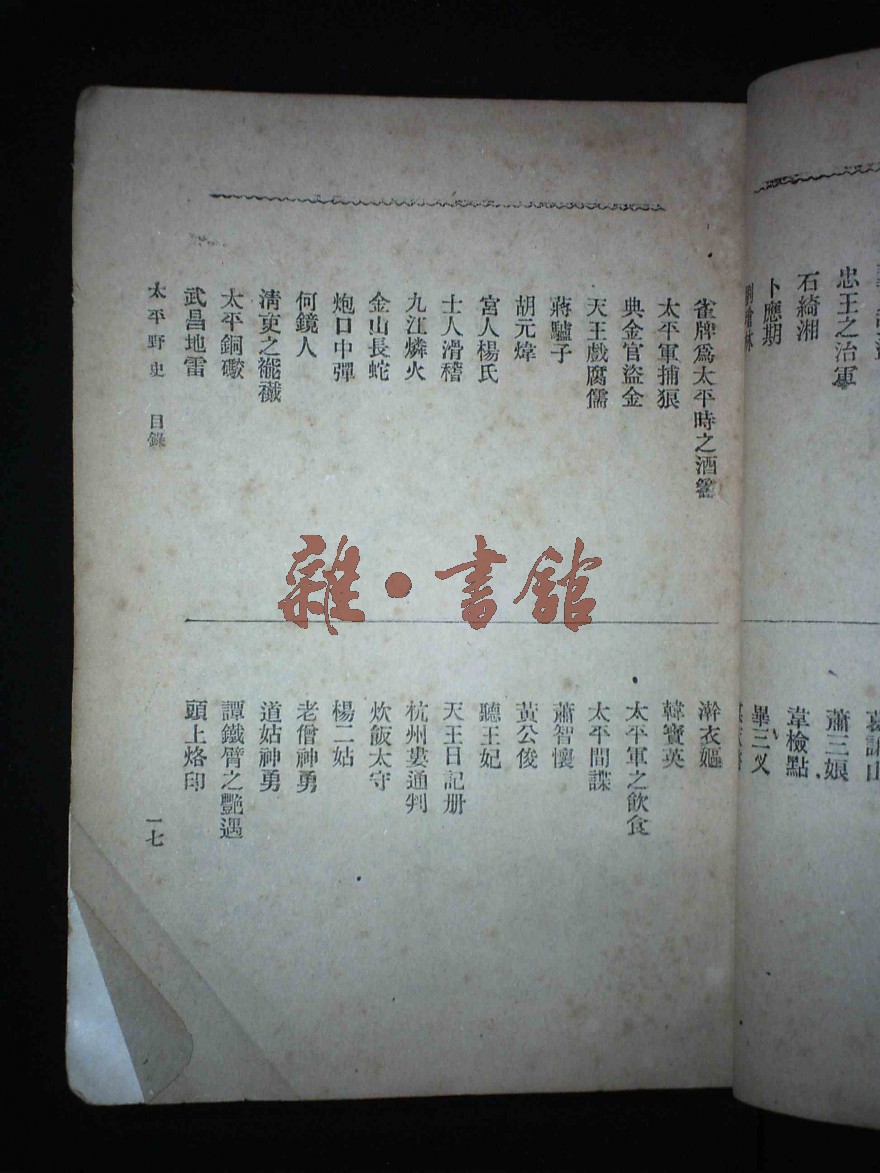 忠王之治軍
石綺湘
卜應期
蕭三娘
韋檢點
畢三乂
雀牌爲太平時之酒籌
太平軍捕狼
典金官盜金
天王戲腐儒
蔣驢子
胡元煒
宮人楊氏
士人滑稽
九江燐火
金山長蛇
炮口中彈
何鏡人
清吏之褦襶
太平銅礮
武昌地雷
澣衣嫗
韓寶英
太平軍之飲食
太平間諜
蕭智懷
黃公俊
聽王妃
天王日記册
杭州婁通判
炊飯太守
楊二姑
老僧神勇
道姑神勇
譚鐵臂之艷遇
頭上烙印
太平野史 目錄
一七
雜·書館